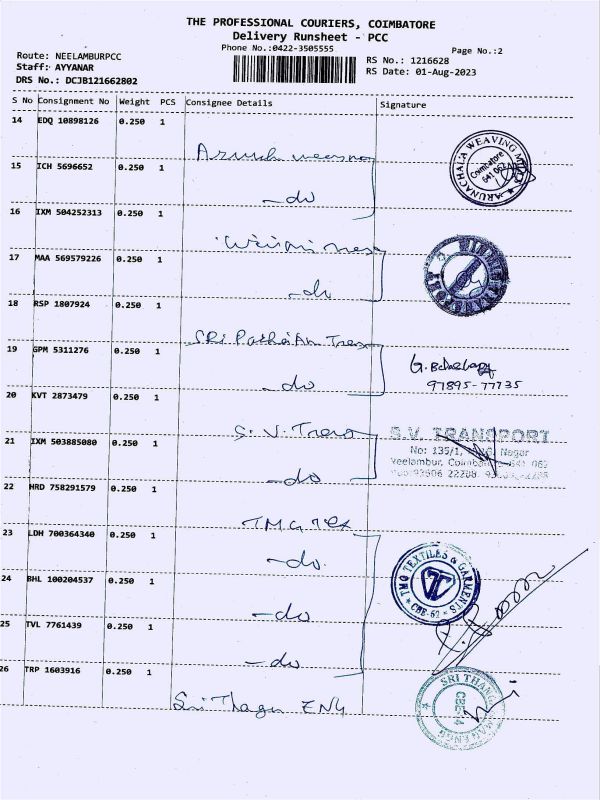 THE PROFESSIONAL COURIERS, COIMBATORE
Delivery Runsheet - PCC
Phone No.:0422-3505555
Page No.:2
Route: NEELAMBURPCC
Staff: AYYANAR
DRS No.: DCJB121662802
RS No.: 1216628
RS Date: 01-Aug-2023
S No Consignment No Weight PCS Consignee Details Signature
14 EDQ 10898126 0.250 1
ARUNACHALA WEAVING MILLS
Coimbatore
641 062
15 ICH 5696652 0.250 1
-do
16 IXM 504252313 0.250 1
17 MAA 569579226 0.250 1
TRANSPORT
-do
18 RSP 1807924 0.250 1
SRi Tex
19 GPM 5311276 0.250 1
97895-77735
-do
20 KVT 2873479 0.250 1
S. V. Trans
S.V. TRANSPORT
21 IXM 503885080 0.250 1
No: 135/1, Nagar
Neelambur, Coimbatore 641 062
-do
22 HRD 758291579 0.250 1
TMG Tex
23 LDH 700364340 0.250 1
-do.
TMG TEXTILES & GARMENTS
CBE-62
24 BHL 100204537 0.250 1
-do
25 TVL 7761439 0.250 1
-do
26 TRP 1603916 0.250 1
Sri Thagu ENG
SRI THANG
CBE-14